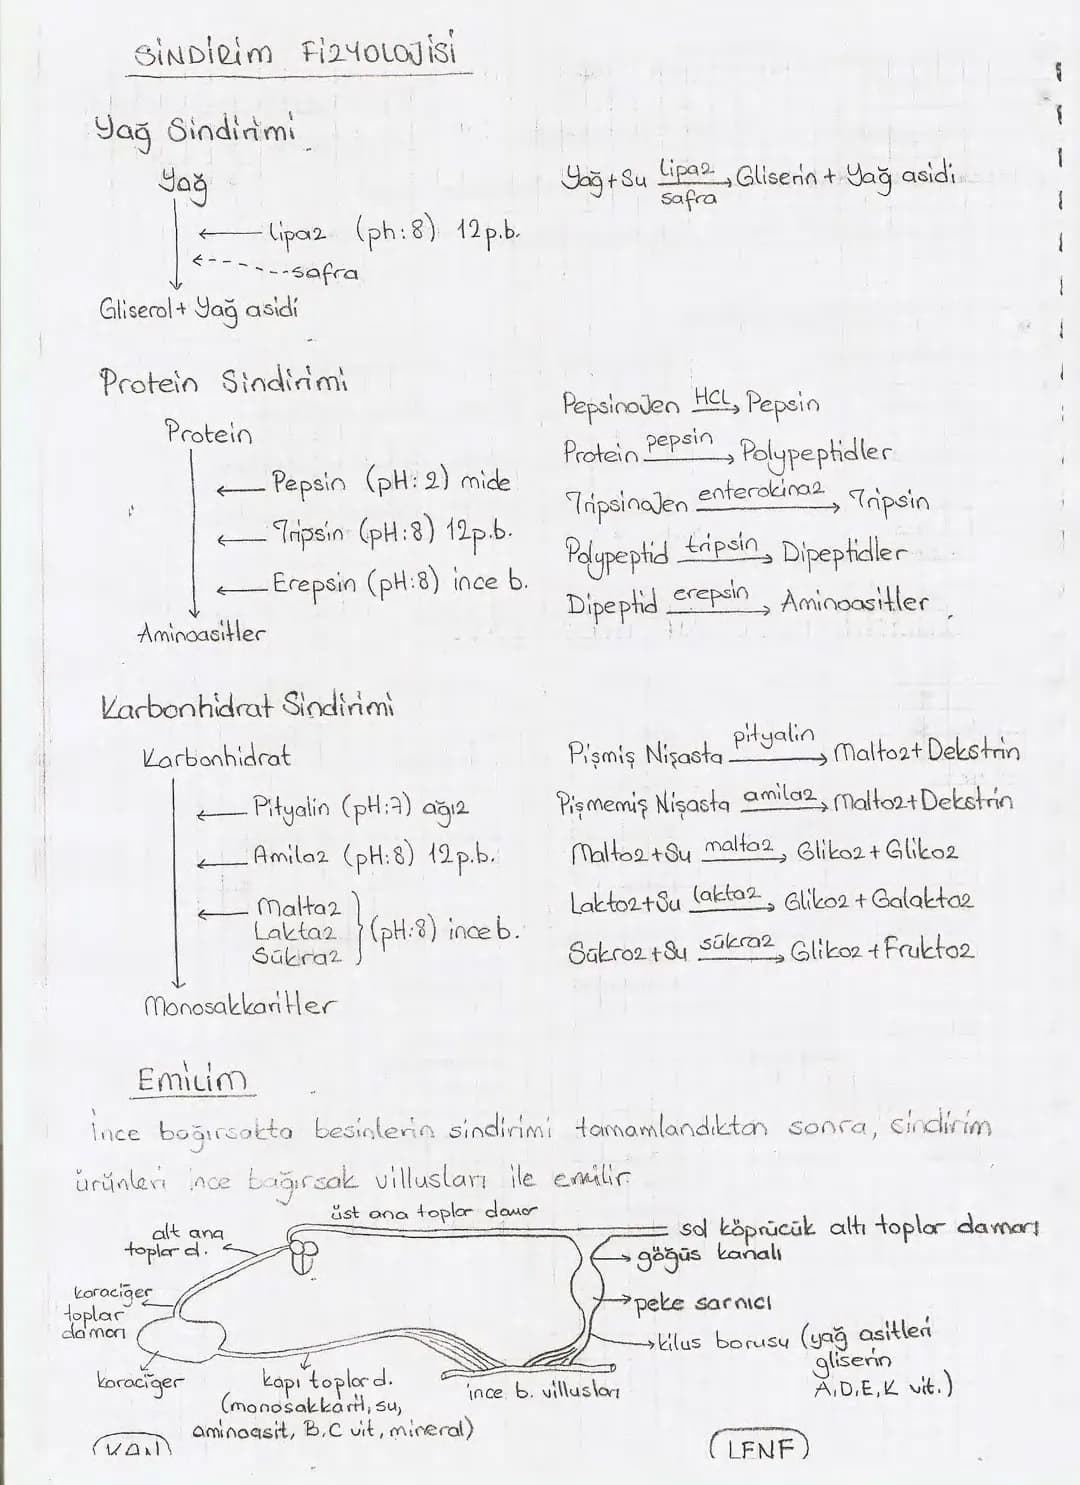 SİNDİRİM FİZYOLOJİSİ
Yağ Sindirimi
Yağ
Lipaz (ph:8) 12p.b.
safra
Gliserol+ Yağ asidi
Yağ+Su Lipaz Gliserin + Yağ asidi
safra
Protein Sindirimi
Protein
Pepsin (pH:2) mide
Tripsin (pH:8) 12p.b.
Erepsin (pH:8) ince b.
Aminoasitler
Pepsinojen HCL Pepsin
Protein pepsin Polypeptidler
Tripsinojen enterokinaz Tripsin
Polypeptid tripsin Dipeptidler
Dipeptid erepsin Aminoasitler
Karbonhidrat Sindirimi
Karbonhidrat
Pityalin (pH:7) ağız
Amilaz (pH:8) 12p.b.
Maltaz
Laktaz (pH:8) ince b.
Sükraz
Monosakkaritler
Pişmiş Nişasta pityalin Maltoz+ Dekstrin
Pişmemiş Nişasta amilaz Maltoz+Dekstrin
Maltoz+Su maltaz Glikoz+Glikoz
Laktoz+Su laktaz Glikoz+Galaktoz
Sükroz+Su sükraz Glikoz+Fruktoz
Emilim
İnce bağırsakta besinlerin sindirimi tamamlandıktan sonra, sindirim
ürünleri ince bağırsak villusları ile emilir.
üst ana toplar damar
alt ana
toplar d.
karaciğer
toplar
damarı
karaciğer
kapı toplar d.
(monosakkarit, su,
aminoasit, B,C vit, mineral)
KAN
ince b. villusları
sol köprücük altı toplar damarı
göğüs kanalı
peke sarnıcı
kilus borusu (yağ asitleri
gliserin
A,D,E,K vit.)
LENF